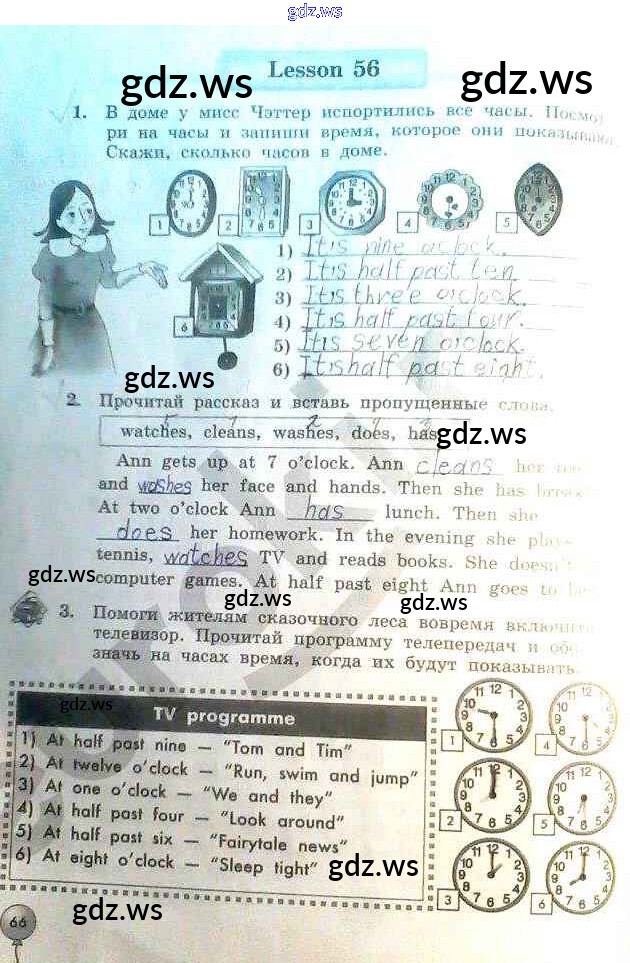 gdz.ws
Lesson 56
gdz.ws
gdz.ws
1. В доме у мисс Чэттер испортились все часы. Посмот
ри на часы и запиши время, которое они показывают
Скажи, сколько часов в доме.
1 2 3 4 5
6
1) It is nine o'clock.
2) It is half past ten
3) It is three o'clock.
4) It is half past four.
5) It is seven o'clock.
6) It is half past eight.
gdz.ws
2. Прочитай рассказ и вставь пропущенные слова.
watches, cleans, washes, does, has
gdz.ws
Ann gets up at 7 o'clock. Ann cleans her
and washes her face and hands. Then she has
At two o'clock Ann has lunch. Then she
does her homework. In the evening she play
tennis, watches TV and reads books. She doesn't
gdz.ws
computer games. At half past eight Ann goes to
gdz.ws
gdz.ws
3. Помоги жителям сказочного леса вовремя включить
телевизор. Прочитай программу телепередач и обо
значь на часах время, когда их будут показывать.
gdz.ws
TV programme
1) At half past nine — "Tom and Tim"
2) At twelve o'clock — "Run, swim and jump"
3) At one o'clock — "We and they"
4) At half past four — "Look around"
5) At half past six — "Fairytale news"
6) At eight o'clock — "Sleep tight"
1 4
2 5
3 6
gdz.ws
gdz.ws
66